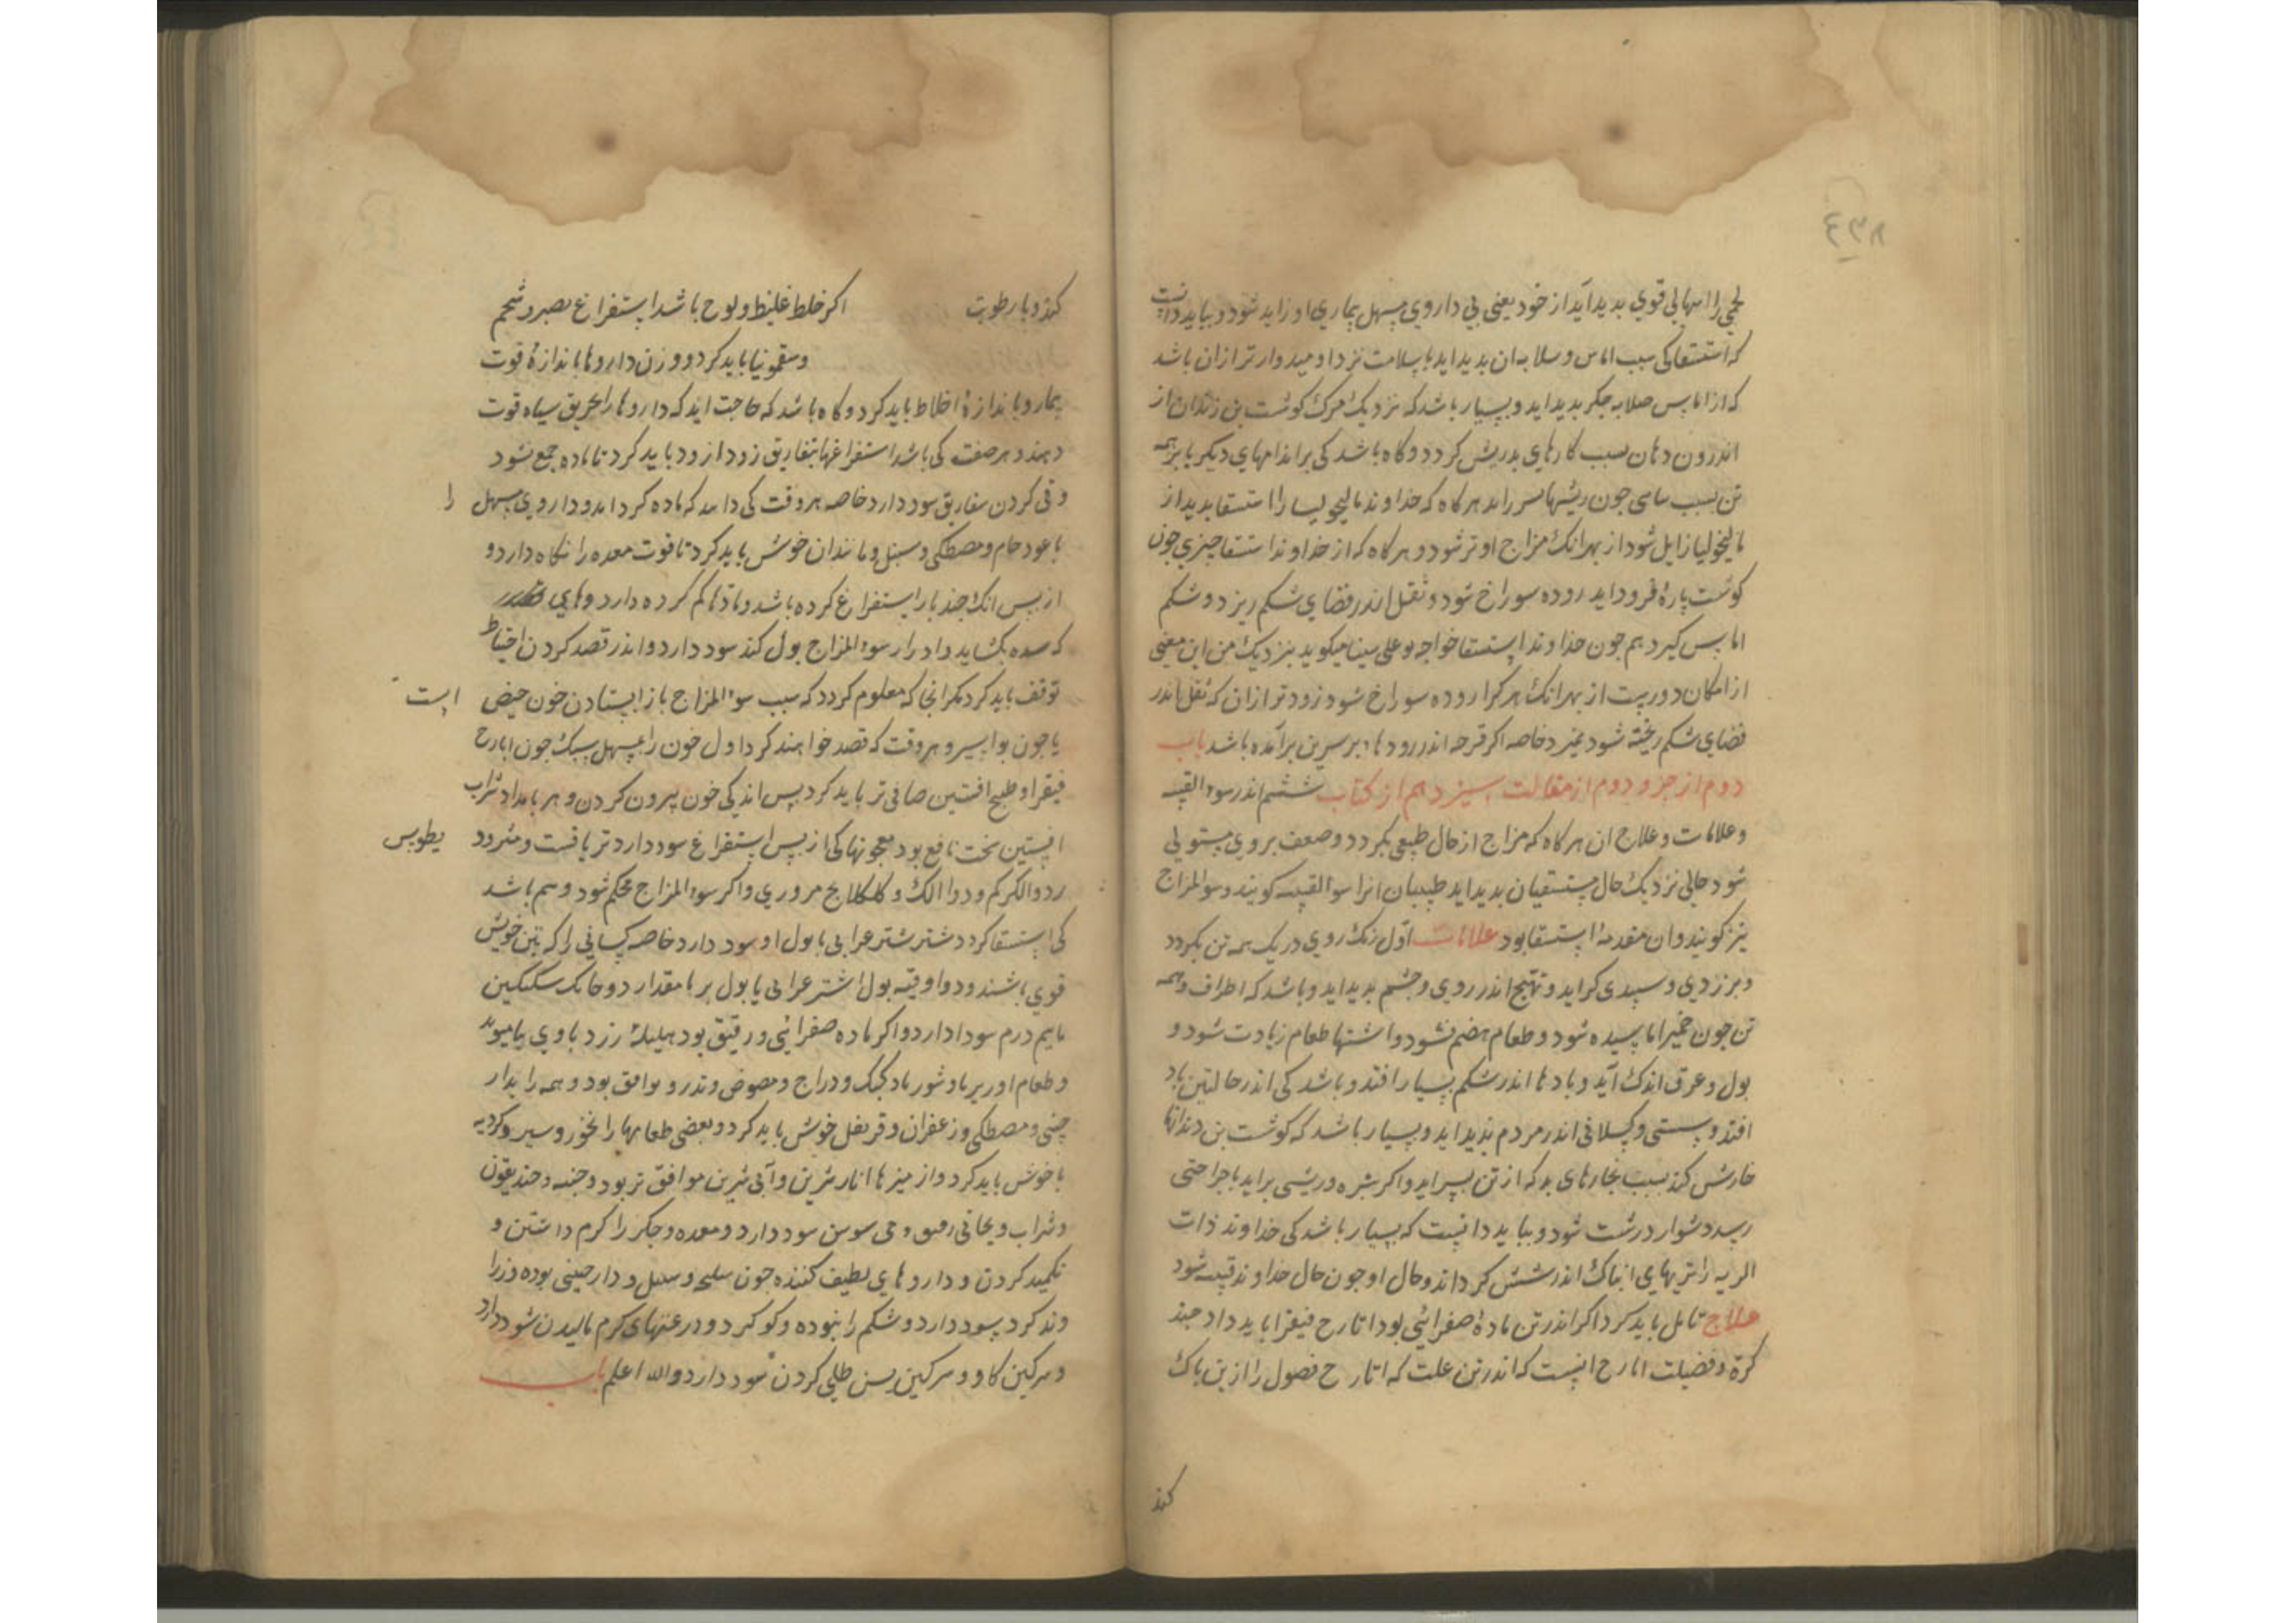 لحمی را اسهالی قوی بدید آید از خود یعنی بی داروی مسهل بیماری او زاید شود و بباید دانست
که استسقا کی سبب اماس و صلابه ان بدید اید با سلامت تر و اومیدوار تر ازان باشد
که از اماس صلابه جکر بدید اید و بسیار باشد که نزدیک مرک کوشت بن زندان از
اندرون دهان سبب کارهای بد ریش کردد و کاه باشد کی بر اندامهای دیکر یا بر همه
تن سبب جون ریشها بر اید هرکاه که خداوند مالیخولیا را استسقا بدید از
مالیخولیا زایل شود از بهر انک مزاج او تر شود و هرکاه که از خداوند استسقا جیزی جون
کوشت پارهٔ فرود اید روده سوراخ شود و ثقل اندر فضای شکم ریزد و شکم
اماس کیرد هم جون خداوند استسقا خواجه بوعلی سینا میکوید بنزدیک من این معنی
از امکان دورست از بهر انک هر کرا روده سوراخ شود زودتر ازان که ثقل اندر
فضای شکم ریخته شود بمیرد خاصه اکر قرحه اندر رودهاء برسرین برآمده باشد باب
دوم از جزو دوم از مقالت سیزدهم از کتاب ششم اندر سوء القنیه
و علامات و علاج ان هرکاه که مزاج از حال طبیعی بکردد و ضعف بروی مستولی
شود حالی نزدیک حال مستسقیان بدید اید طبیبان انرا سوء القنیه کویند و سوء المزاج
نیز کویند و ان مقدمهٔ استسقا بود علامات اول رنک روی و رنک همه تن بکردد
و بر زردی و سپیدی کراید و تهیج اندر روی و جشم بدید اید و باشد که اطراف و همه
تن جون خمیر اماسیده شود و طعام هضم نشود و اشتها طعام زیادت شود و
بول و عرق اندک آید و بادها اندر شکم بسیار افتد و باشد کی اندر حالتین باد
افتد و سستی و کسلانی اندر مردم بدید اید و بسیار باشد که کوشت بن دندانها
خارش کند سبب بخارهای بد که از تن بر اید و اکر بثره و ریشی براید یا جراحتی
رسد دشوار درست شود و بباید دانست که بسیار باشد کی خداوند ذات
الریه را تریهای اندر شش کرد اند و حال او جون حال خداوند قنیه شود
علاج تامل باید کرد اکر اندر تن مادهٔ صفرائی بود ایارج فیقرا باید داد جند
کرة و فضیلت ایارج انست که اندرین علت که ایارج فضول را از تن پاک
کند
کند و با رطوبت اکر خلط غلیظ و لزج باشد استفراغ بصبر و شحم
و سقمونیا باید کرد و وزن داروها باندازهٔ قوت
بیمار و باندازهٔ اخلاط باید کرد و کاه باشد که حاجت اید که داروها را بخربق سیاه قوت
دهند و هر صفت کی باشد استفراغها بتفاریق زود از زود باید کرد تا ماده جمع نشود
و قی کردن بتفاریق سود دارد خاصه هر وقت کی داند که ماده کرد امد و داروی مسهل را
با عود خام و مصطکی و سنبل و مانند ان خوش باید کرد تا قوت معده را نکاه دارد و
از پس انک جند بار استفراغ کرده باشد و مادها کم کرده داروهای
که سده بکشاید و ادرار سوء المزاج بول کند سود دارد و اندر فصد کردن احتیاط
توقف باید کرد مکر انجا که معلوم کردد که سبب سوء المزاج باز ایستادن خون حیض است
یا خون بواسیر و هر وقت که فصد خواهند کرد اول خون را بمسهل سبک جون ایارج
فیقرا و طبیخ افسنتین صافی تر باید کرد پس اندکی خون بیرون کردن و هر بامداد شراب
افسنتین سخت نافع بود معجونها کی از پس استفراغ سود دارد تریاقست و مثرودیطوس
و دواء الکرکم و دواء اللک و کلکلانج مروری و اکر سوء المزاج محکم شود و بیم باشد
کی استسقا کردد شیر شتر عرابی با بول او سود دارد خاصه کسانی را که بتن خویش
قوی باشند و دو اوقیه بول اشتر عرابی یا بول بز با مقدار دو دانک سکبینج
یا نیم درم سود دارد و اکر ماده صفرائی و رقیق بود هلیلهٔ زرد با وی بیامیزند
و طعام او زیرباء و شورباء کبک و دراج و مصوص و تذرو موافق بود و همه را بدار
جینی و مصطکی و زعفران و قرنفل خوش باید کرد و بعضی طعامها را بخز و سیر و کرویه
با خوش باید کرد و از میوها انار شرین و آبی شرین موافق تر بود و خندیقون
و شراب ریحانی رقیق و می سوسن سود دارد و معده و جکر را کرم داشتن و
تکمید کردن و داروهای لطیف کننده جون سلیخه و سنبل و دارجینی بوده و زرا
وند کرد سود دارد و شکم را ببوره و کوکرد و روغنهای کرم مالیدن سود دارد
و سرکین کاو و سرکین بز طلی کردن سود دارد والله اعلم باب